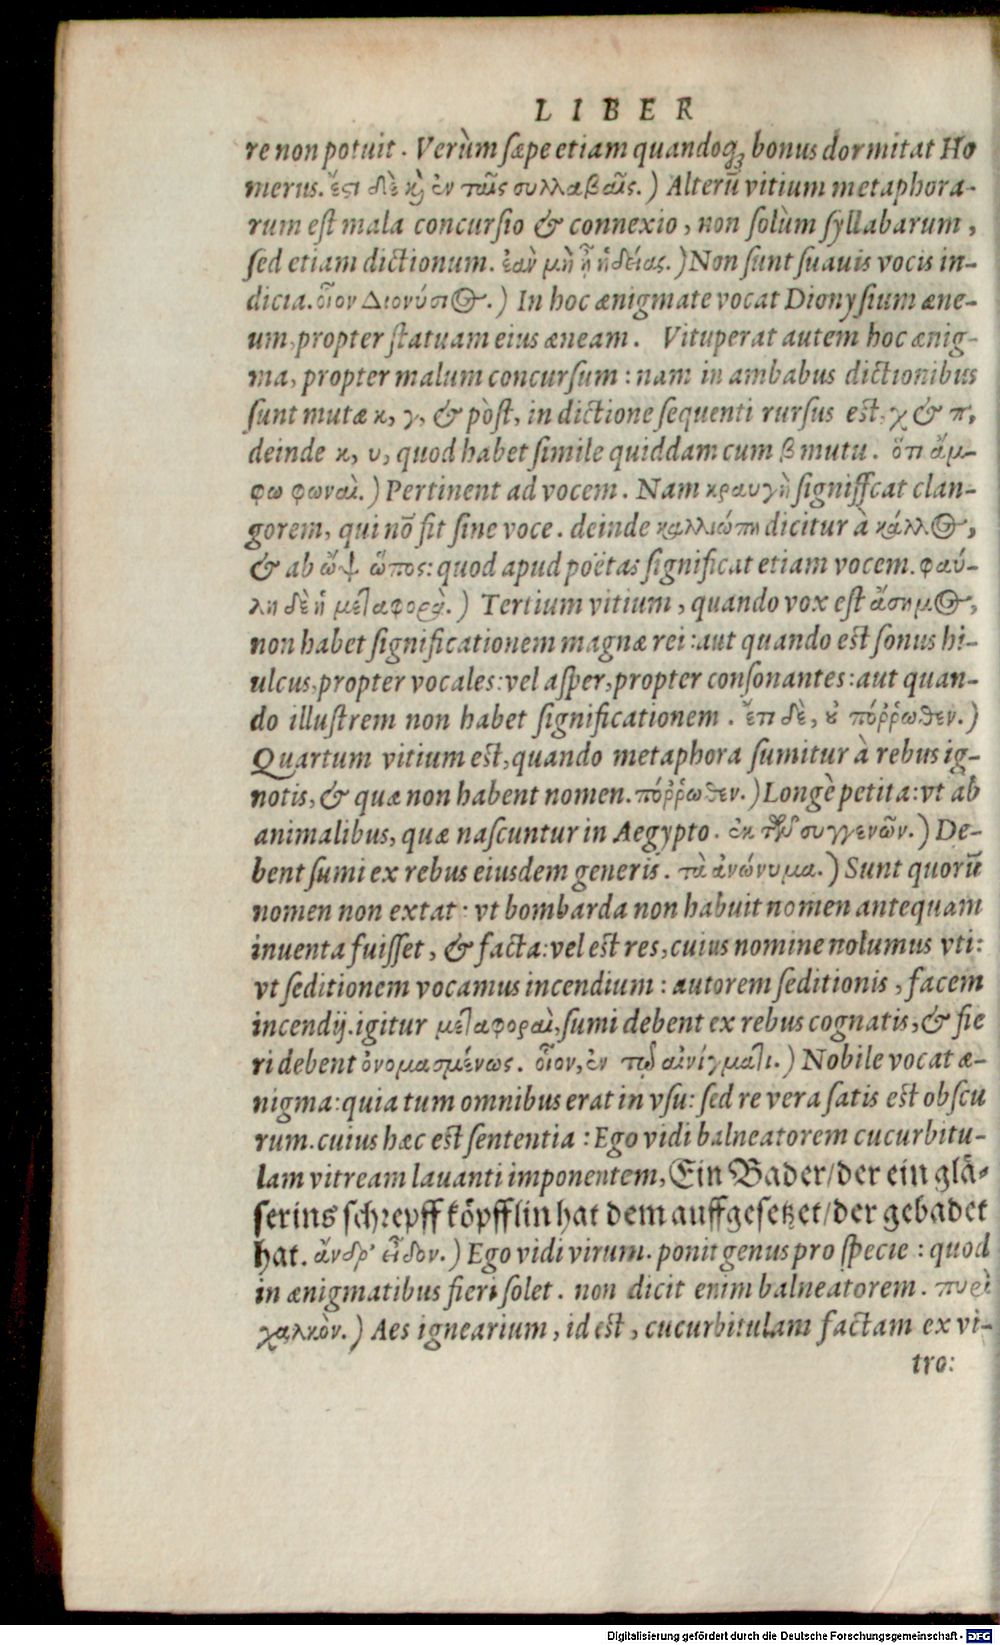 LIBER
re non potuit. Verùm sæpe etiam quandoq; bonus dormitat Ho
merus. ἔστι δὲ κὶ ἐν ταῖς συλλαβαῖς.) Alterũ vitium metaphora-
rum est mala concursio & connexio, non solùm syllabarum,
sed etiam dictionum. ἐὰν μὴ ᾖ ἡδείας.) Non sunt suauis vocis in-
dicia. οἷον Διονύσιος.) In hoc ænigmate vocat Dionysium æne-
um, propter statuam eius æneam. Vituperat autem hoc ænig-
ma, propter malum concursum: nam in ambabus dictionibus
sunt mutæ κ, γ, & pòst, in dictione sequenti rursus est, χ & π,
deinde κ, υ, quod habet simile quiddam cum β mutu. ὅτι ἄμ-
φω φωναὶ.) Pertinent ad vocem. Nam κραυγὴ signiffcat clan-
gorem, qui nõ fit sine voce. deinde καλλιώπη dicitur à κάλλος,
& ab ὤψ ὦπος: quod apud poëtas significat etiam vocem. φαύ-
λη δὲ ἡ μεταφορὰ.) Tertium vitium, quando vox est ἄσημος,
non habet significationem magnæ rei: aut quando est sonus hi-
ulcus, propter vocales: vel asper, propter consonantes: aut quan-
do illustrem non habet significationem. ἔτι δὲ, οὐ πόῤῥωθεν.)
Quartum vitium est, quando metaphora sumitur à rebus ig-
notis, & quæ non habent nomen. πόῤῥωθεν.) Longè petita: vt ab
animalibus, quæ nascuntur in Aegypto. ἐκ τῶν συγγενῶν.) De-
bent sumi ex rebus eiusdem generis. τὰ ἀνώνυμα.) Sunt quorũ
nomen non extat: vt bombarda non habuit nomen antequam
inuenta fuisset, & facta: vel est res, cuius nomine nolumus vti:
vt seditionem vocamus incendium: autorem seditionis, facem
incendij. igitur μεταφοραὶ, sumi debent ex rebus cognatis, & fie
ri debent ὀνομασμένως. οἷον, ἐν τῷ αἰνίγματι.) Nobile vocat æ-
nigma: quia tum omnibus erat in vsu: sed re vera satis est obscu
rum. cuius hæc est sententia: Ego vidi balneatorem cucurbitu-
lam vitream lauanti imponentem, Ein Bader/ der ein glä-
serins schrepff köpfflin hat dem auffgesetzet/ der gebadet
hat. ἄνδρ' εἶδον.) Ego vidi virum. ponit genus pro specie: quod
in ænigmatibus fieri solet. non dicit enim balneatorem. πυρὶ
χαλκὸν.) Aes ignearium, id est, cucurbitulam factam ex vi-
tro:
Digitalisierung gefördert durch die Deutsche Forschungsgemeinschaft - DFG